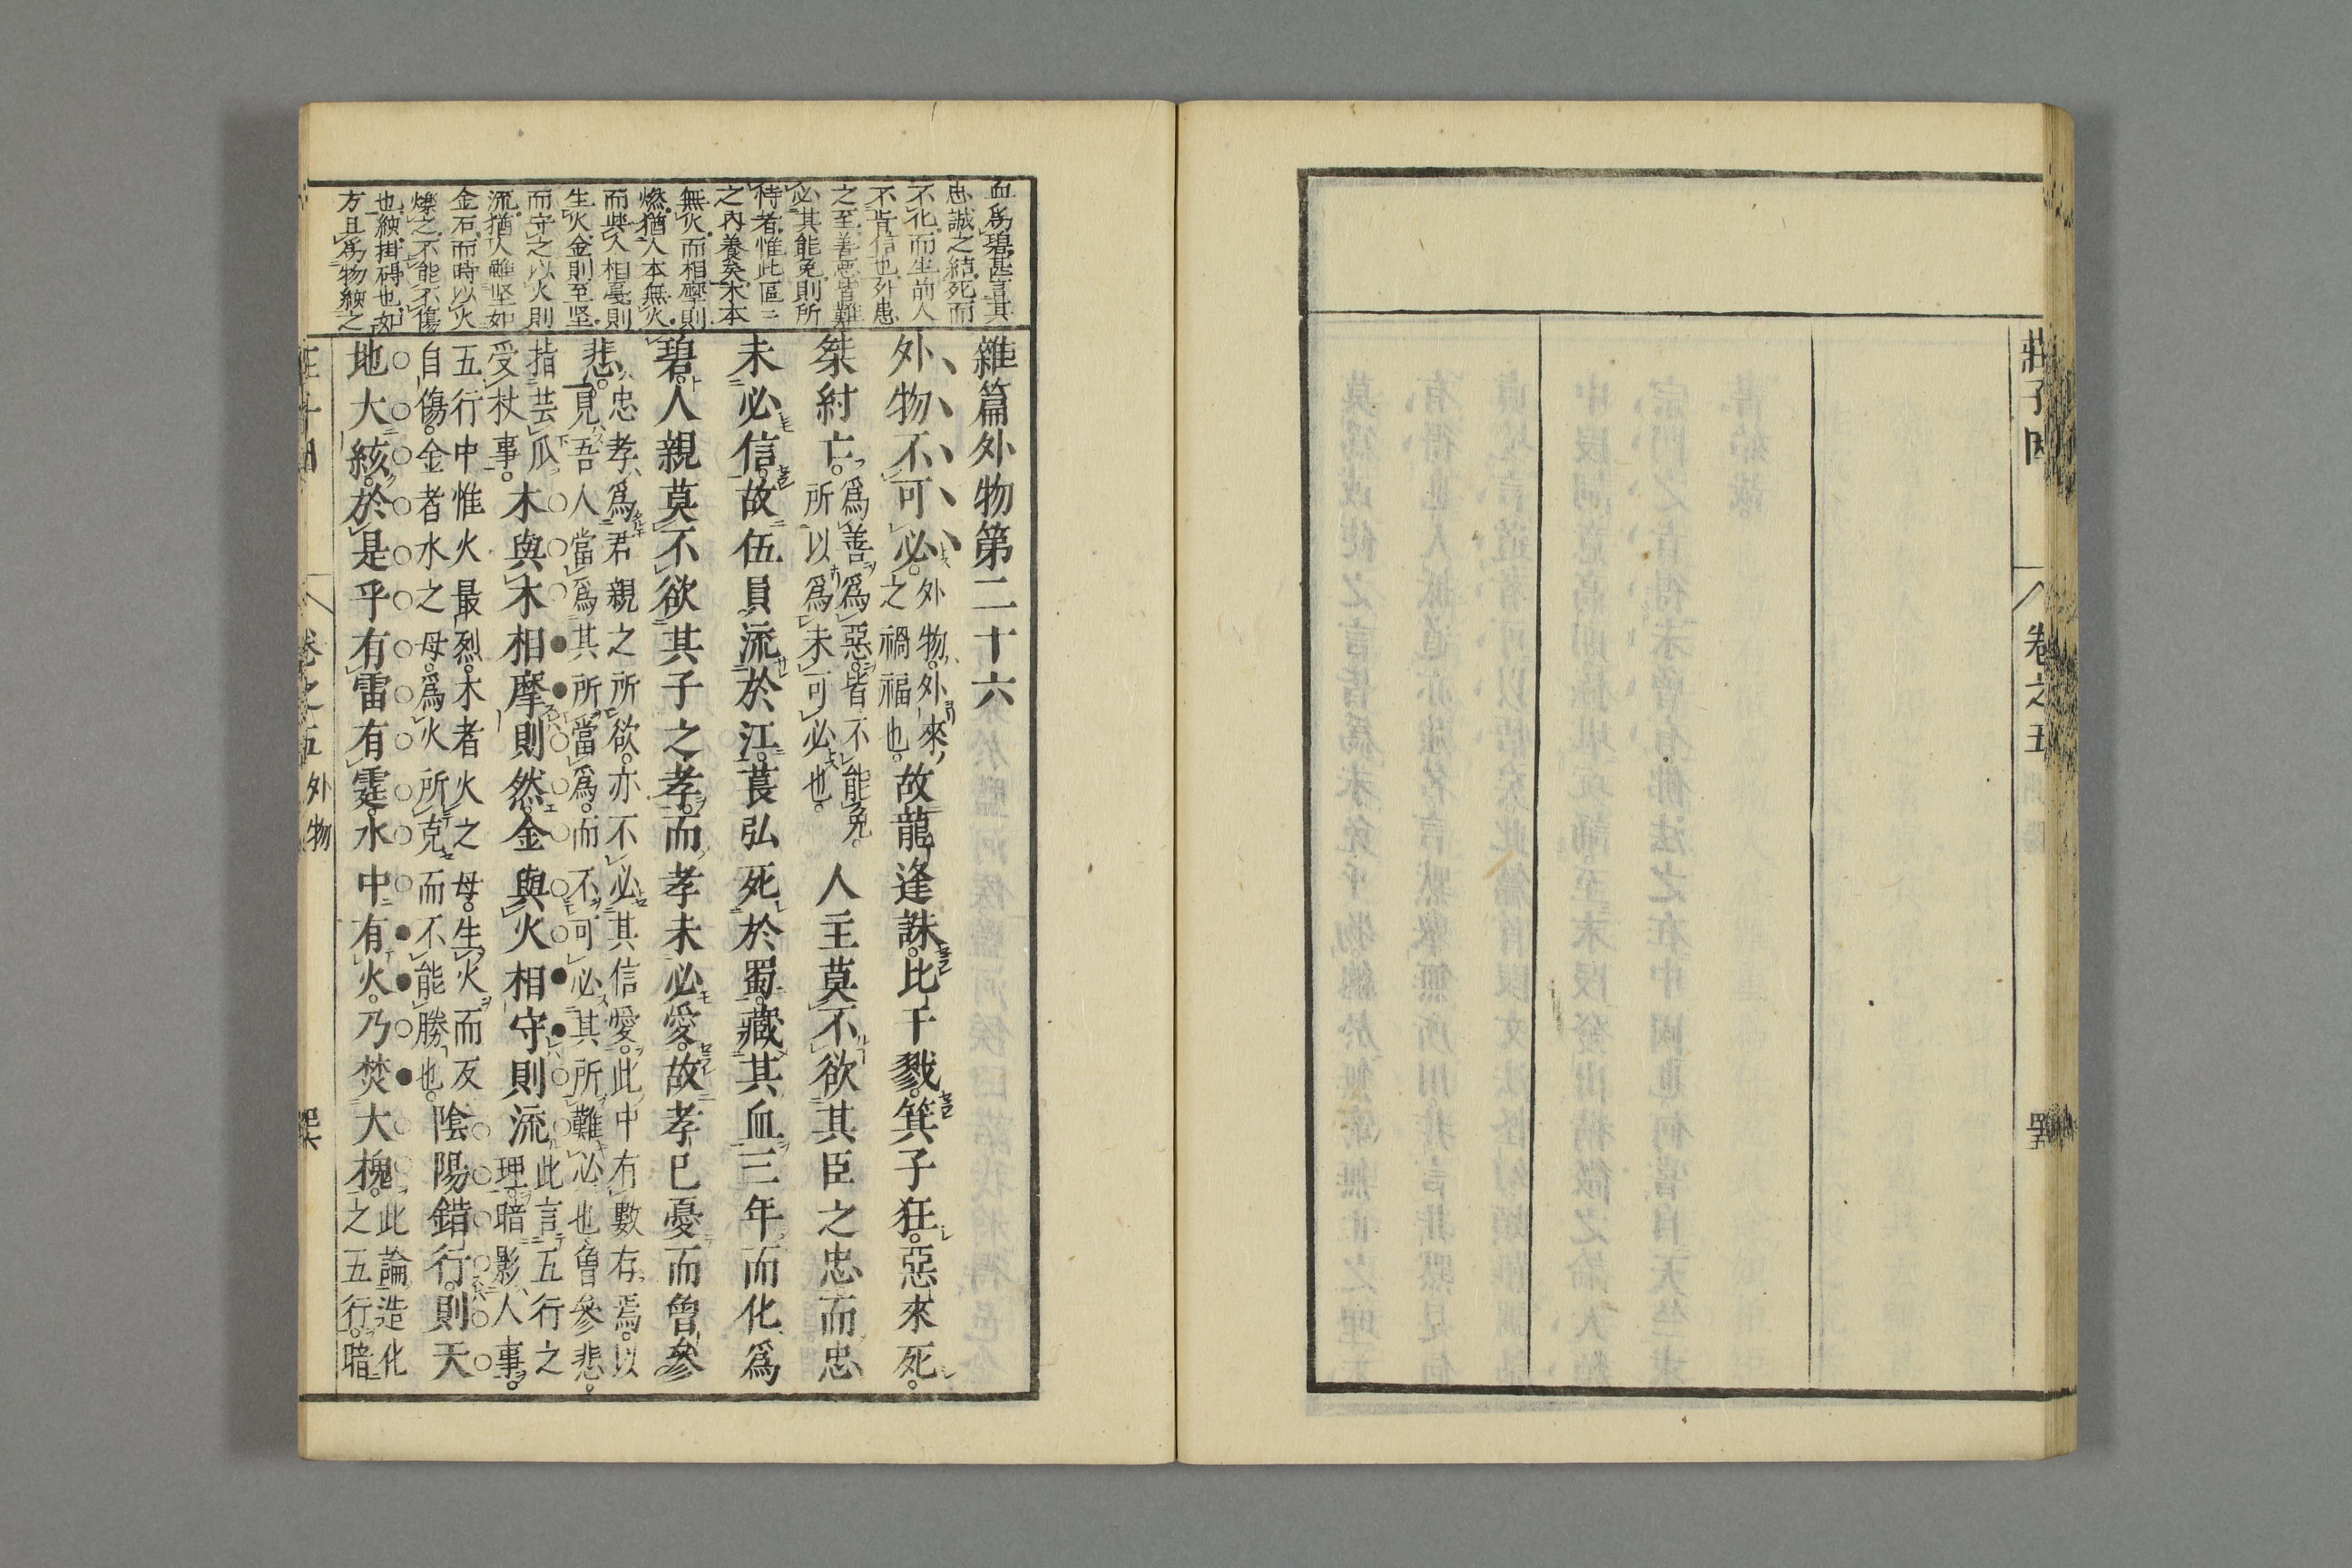 莊子因
卷之五
雜篇外物第二十六
外物不可必。外物。外來,之禍福也。故龍逢誅。比干戮。箕子狂。惡來死。
桀紂亡。爲善爲惡。皆不能免。所以爲未可必也。人主莫不欲其臣之忠而忠
未必信。故伍員流於江。萇弘死於蜀。藏其血三年而化爲
碧。人親莫不欲其子之孝。而孝未必愛。故孝已憂而曾參
悲。忠孝爲君親之所欲。亦不必其信愛。此中有數存焉。以見吾人當爲其所當爲。而不可必其所難必也。曾參悲。
指芸瓜受杖事。木與木相摩則然。金與火相守則流。此言五行之理。暗影人事。
五行中惟火最烈。木者火之母。生火而反自傷。金者水之母。爲火所克而不能勝也。陰陽錯行。則天
地大絃。於是乎有雷有霆。水中有火。乃焚大槐。此論造化之五行。暗
血爲碧。甚言其
忠誠之結。死而
不化。而生前人
不肯信也。外患
之至。善惡皆難
必其能免。則所
恃者。惟此區々
之內養矣。木本
無火。而相摩則
燃。猶人本無火。
而與人相憂則
生火。金則至坚。
而守之以火則
流。猶人雖坚如
金石。而時以火
爍之。不能不傷
也。絃。掛碍也。如
方且爲物絃之
卷之五
外物